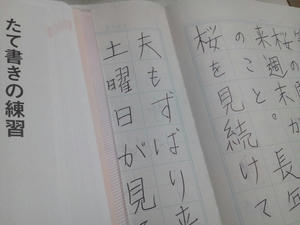 来週の末
のこと。
桜を見続けて
夫もずばり来
土曜日が見
たて書きの練習